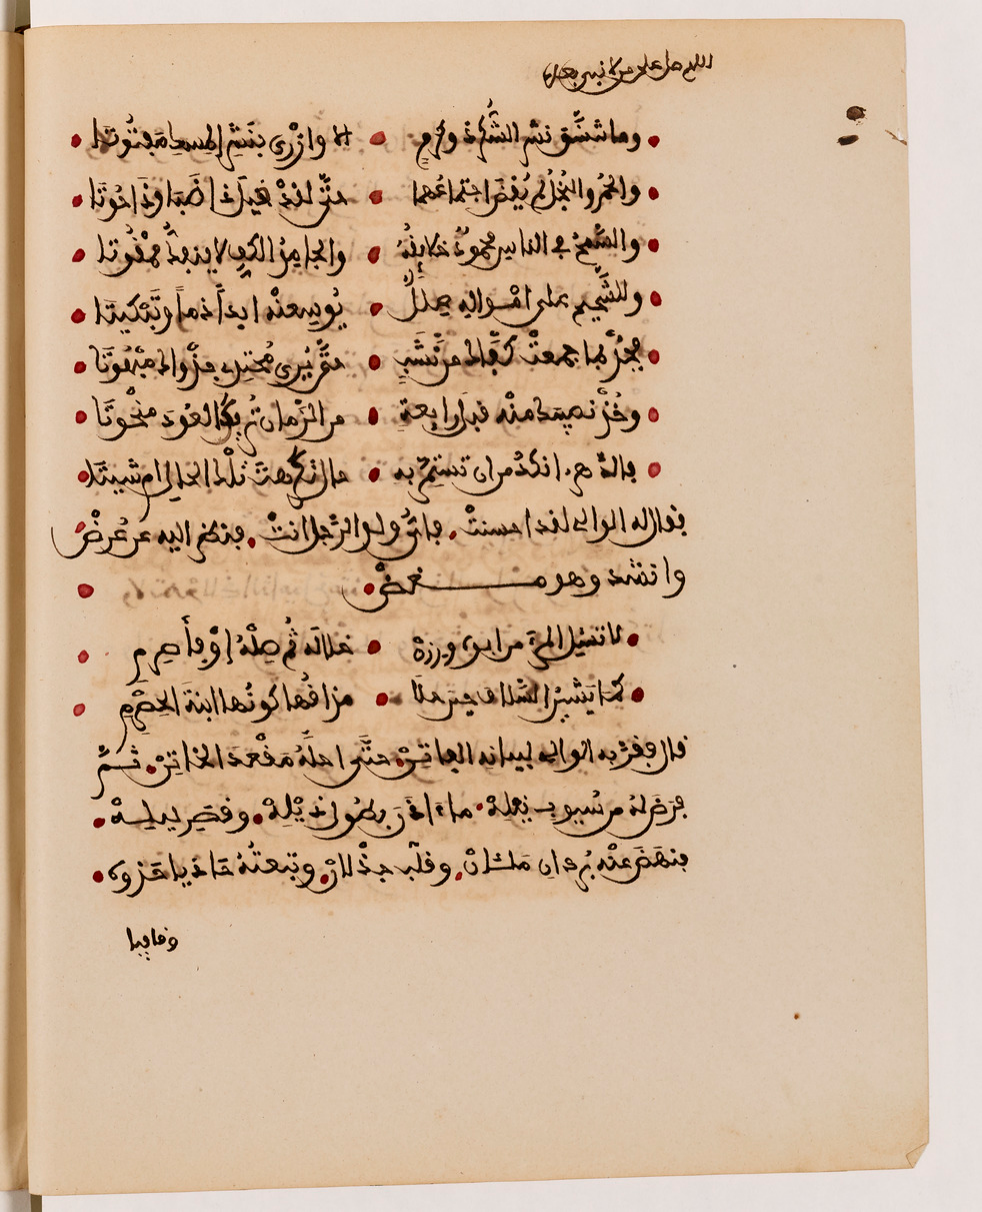 اللهم صل على من لا نبي بعده
وما تنشق نشر الشكر ذو كرم • الا وازرى بنشر المسك مفتوتا
والحمد والبخل لم يقض اجتماعهما • حتى لقد خيل ذا ضبا وذا حوتا
والسمح في الناس محمود خلايقه • والجامد الكف لا ينفك ممقوتا
وللشحيح على امواله علل • يوسعنه ابدا ذما وتبكيتا
فجد بما جمعت كفاك من نشب • حتى يرى مجتدي جدواك مبهوتا
وخذ نصيبك منه قبل رابعة • من الزمان تريك العود منحوتا
فالدهر انكد من ان تستمر به • حال تكرهت تلك الحال ام شيتا
فقال له الوالي لقد احسنت • فاي ولد الرجل انت • فنظر اليه عن عرض
وانشد وهو مغض
لا تسئل المرء من ابوه ورزه • خلاله ثم صله او فاصرم
فما يشين السلاف حين حلا • مذاقها كونها ابنة الحصرم
قال فقربه الوالي لبيانه الفاتن • حتى احله مقعد الخاتن • ثم
فرض له من سيوب نيله • ما اذن بطول ذيله • وقصر ليله •
فنهض عنه بردن ملان • وقلب جذلان • وتبعته حاذيا حذوه •
وقافيا